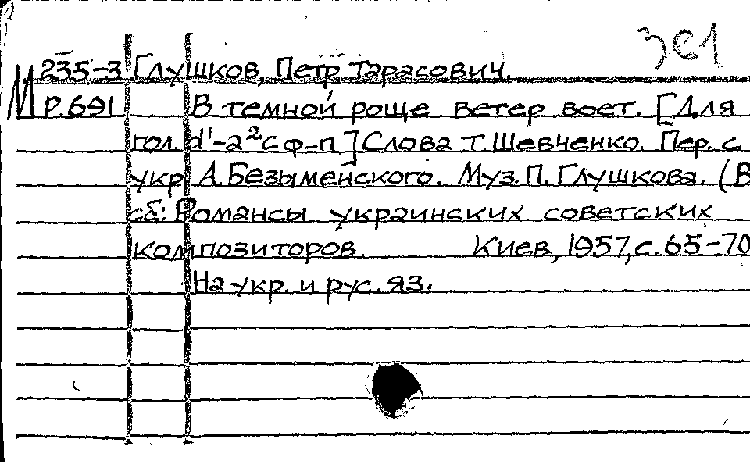 3е1
235-3 Глушков, Петр Тарасович.
М Р.691 В темной роще ветер воет. [Для
гол. d¹-a² с ф-п] Слова Т. Шевченко. Пер. с
укр. А. Безыменского. Муз. П. Глушкова. (В
сб: Романсы украинских советских
композиторов. Киев, 1957, с. 65-70
На укр. и рус. яз.